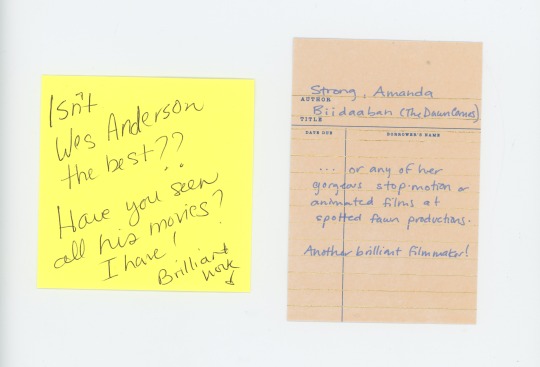 Isn't
Wes Anderson
the best??
Have you seen
all his movies?
I have!
Brilliant
work
Strong, Amanda
AUTHOR
Biidaaban (The Dawn Comes)
TITLE
DATE DUE
BORROWER'S NAME
... or any of her
gorgeous stop-motion or
animated films at
spotted fawn productions.
Another brilliant filmmaker!